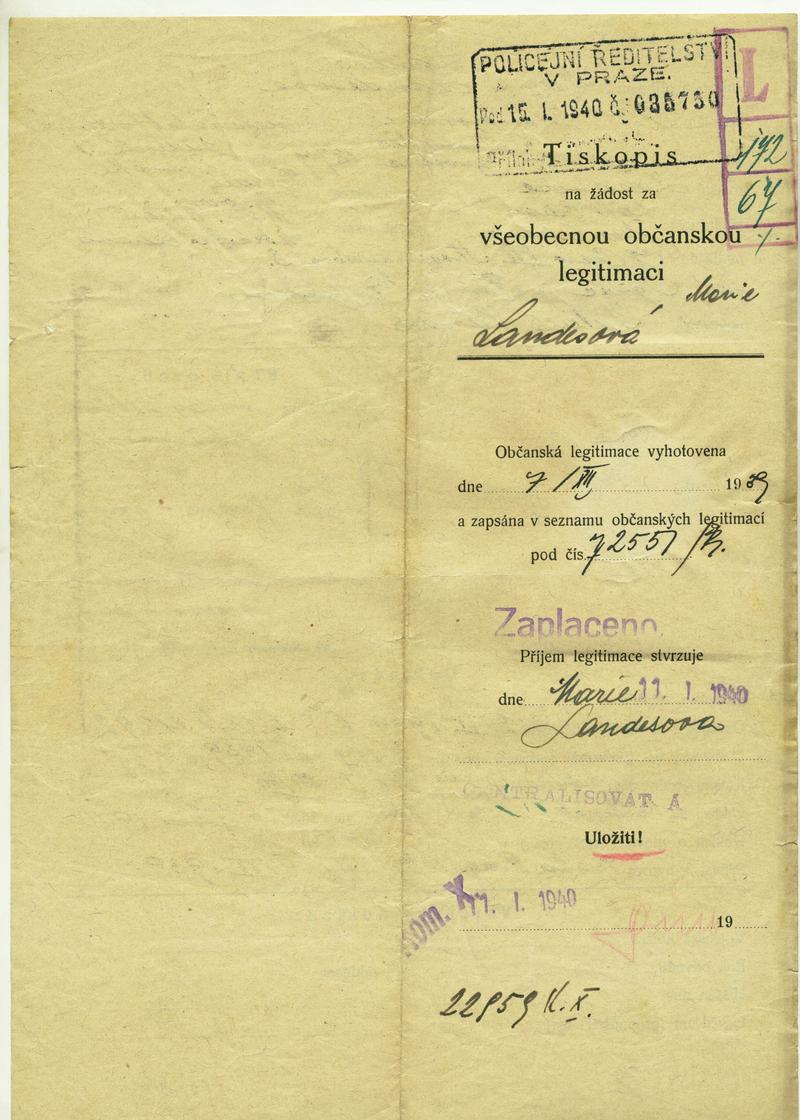 POLICEJNÍ ŘEDITELSTVÍ
V PRAZE.
15. I. 1940 č. 035730
L
172
67
Tiskopis
na žádost za
všeobecnou občanskou
legitimaci
Marie
Landesová
Občanská legitimace vyhotovena
dne 7/XII 1939
a zapsána v seznamu občanských legitimací
pod čís. 72551
Zaplaceno.
Příjem legitimace stvrzuje
dne Marie 11. I. 1940
Landesova
CENTRALISOVAT A
Uložiti!
Kom. X 11. I. 1940
19
22959 K.X.